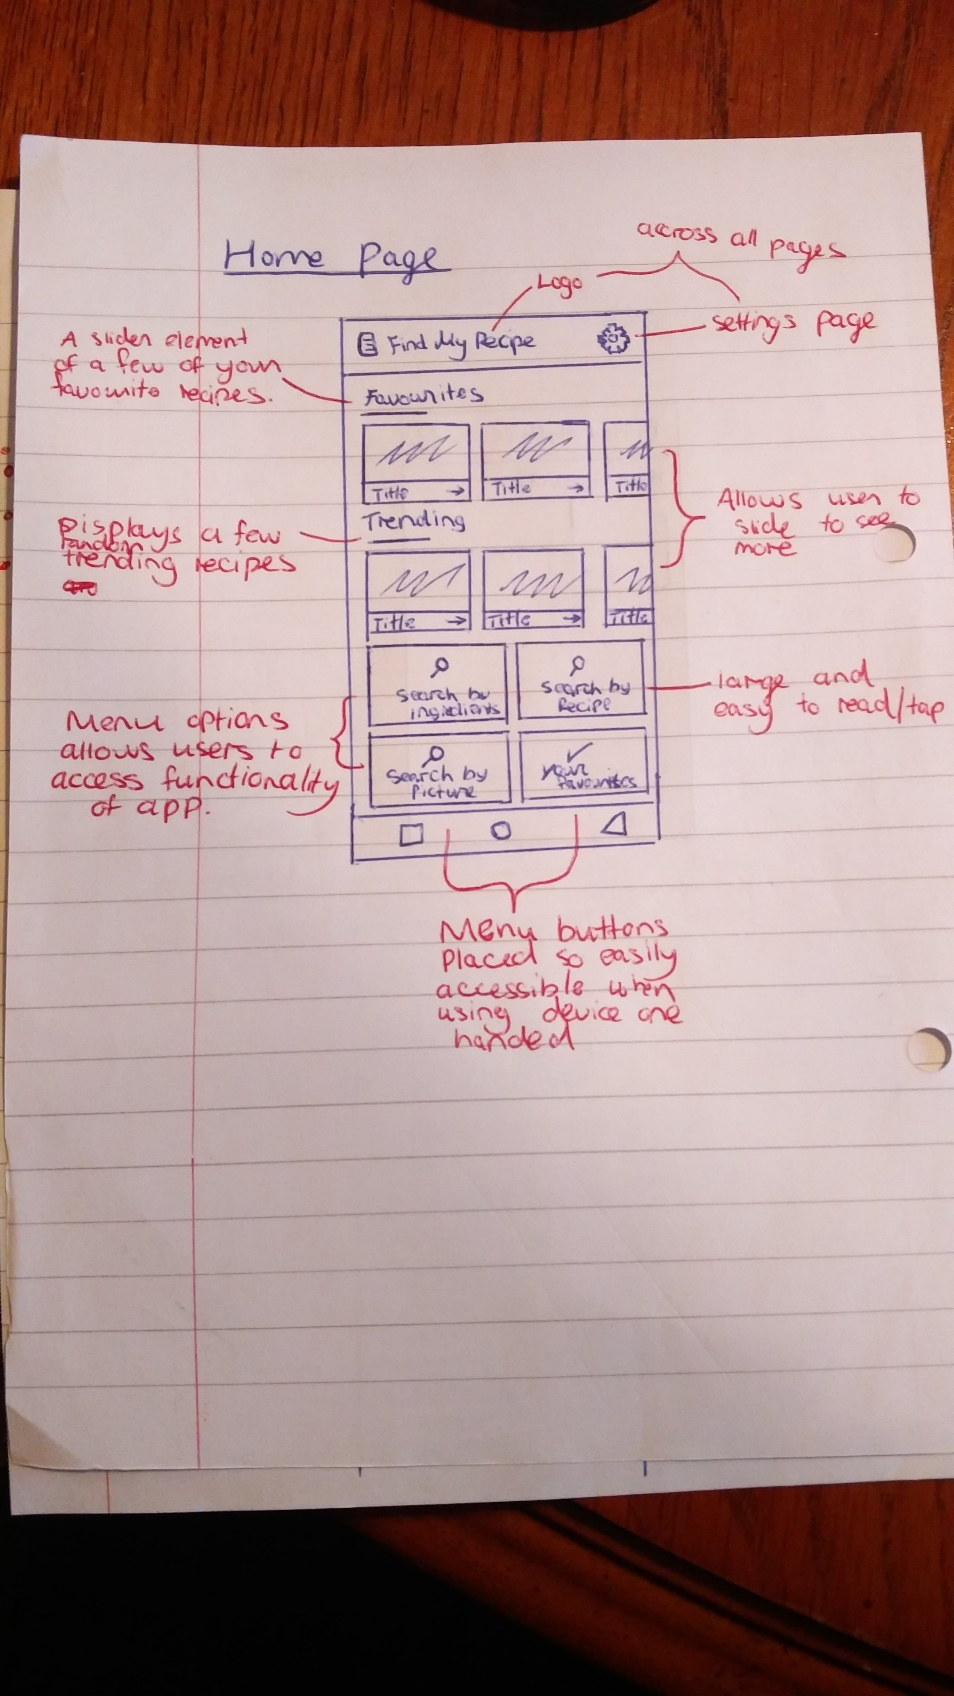 Home Page
across all pages
Logo
settings page
A slider element
of a few of your
favourite recipes.
Find My Recipe
Favourites
Title
Title
Title
Allows user to
slide to see
more
Trending
Displays a few
random
trending recipes
Title
Title
Title
Search by
ingredients
Search by
Recipe
large and
easy to read/tap
Menu options
allows users to
access functionality
of app.
Search by
Picture
Your
Favourites
Menu buttons
placed so easily
accessible when
using device one
handed